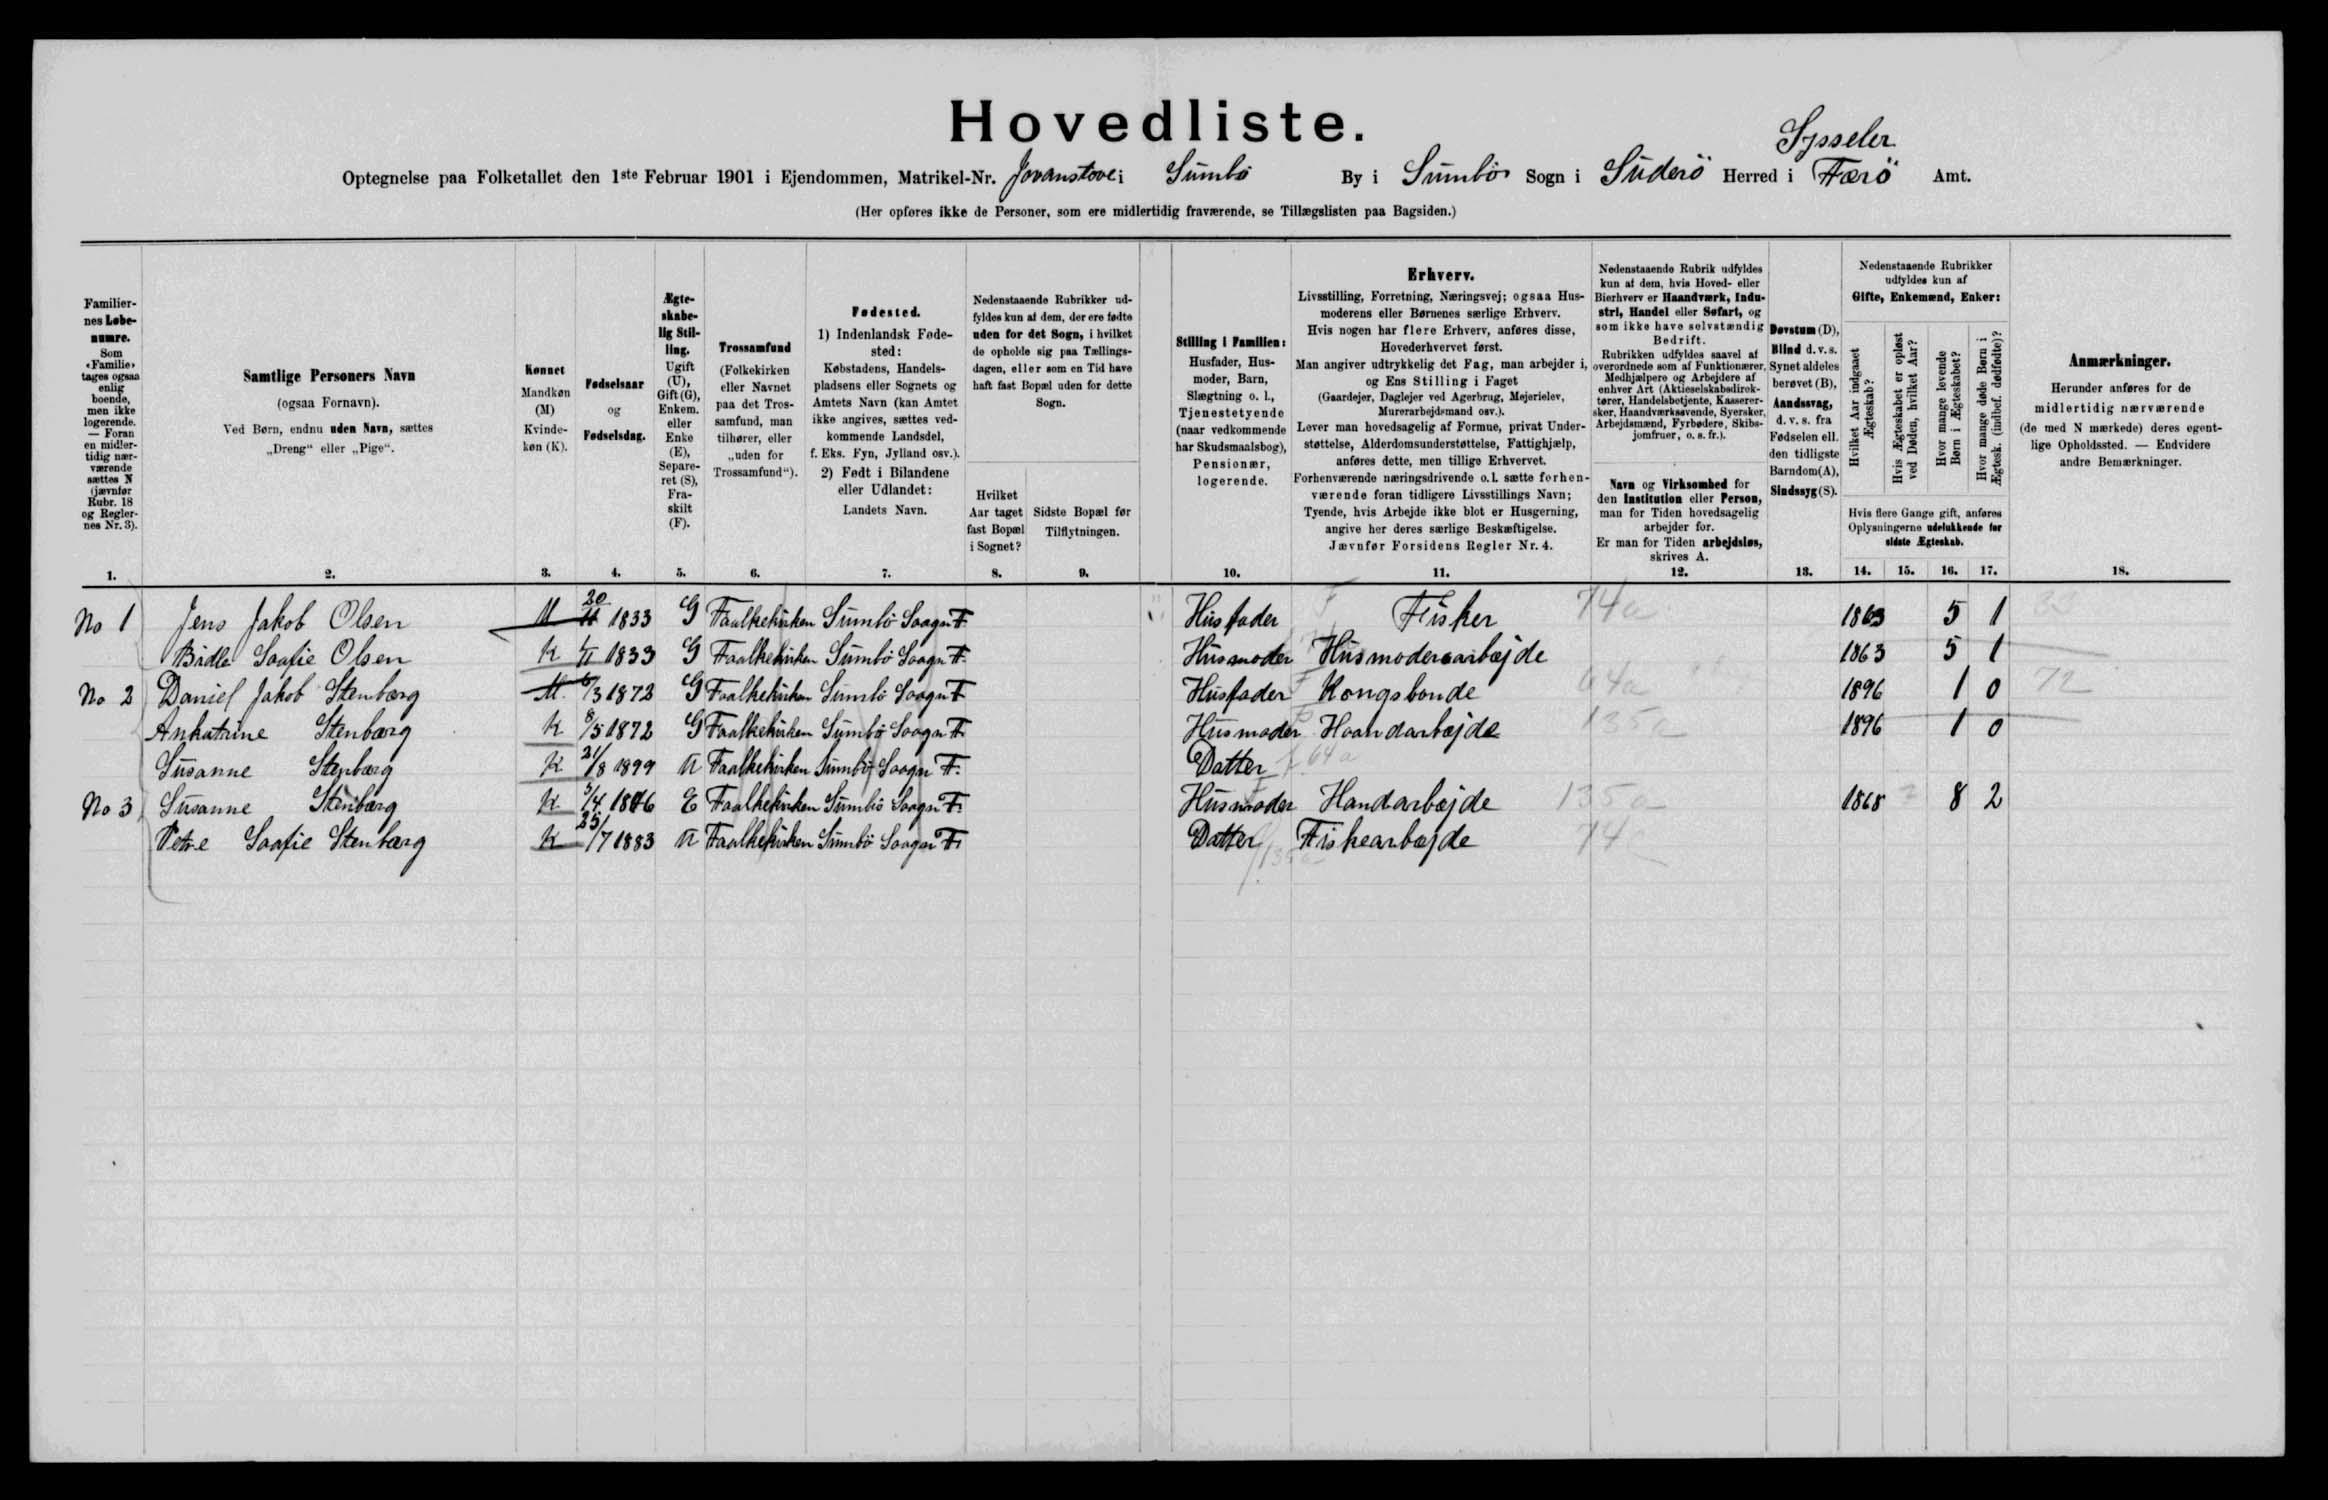 Hovedliste.
Sysseler
Optegnelse paa Folketallet den 1ste Februar 1901 i Ejendommen, Matrikel-Nr. Jovanstove i Sumbø By i Sumbö Sogn i Süderö Herred i Færö Amt.
(Her opføres ikke de Personer, som ere midlertidig fraværende, se Tillægslisten paa Bagsiden.)
Familiernes Løbenumre. Som «Familie» tages ogsaa enlig boende, men ikke logerende. — Foran en midlertidig nærværende sættes N (jævnfør Rubr. 18 og Reglernes Nr. 3).
Samtlige Personers Navn (ogsaa Fornavn). Ved Børn, endnu uden Navn, sættes „Dreng“ eller „Pige“.
Kønnet Mandkøn (M) Kvindekøn (K).
Fødselsaar og Fødselsdag.
Ægteskabelig Stilling. Ugift (U), Gift (G), Enkem. eller Enke (E), Separeret (S), Fraskilt (F).
Trossamfund (Folkekirken eller Navnet paa det Trossamfund, man tilhører, eller „uden for Trossamfund“).
Fødested. 1) Indenlandsk Fødested: Købstadens, Handelspladsens eller Sognets og Amtets Navn (kan Amtet ikke angives, sættes vedkommende Landsdel, f. Eks. Fyn, Jylland osv.). 2) Født i Bilandene eller Udlandet: Landets Navn.
Nedenstaaende Rubrikker udfyldes kun af dem, der ere fødte uden for det Sogn, i hvilket de opholde sig paa Tællingsdagen, eller som en Tid have haft fast Bopæl uden for dette Sogn.
Hvilket Aar taget fast Bopæl i Sognet?
Sidste Bopæl før Tilflytningen.
Stilling i Familien: Husfader, Husmoder, Barn, Slægtning o. l., Tjenestetyende (naar vedkommende har Skudsmaalsbog), Pensionær, logerende.
Erhverv.
Livsstilling, Forretning, Næringsvej; ogsaa Husmoderens eller Børnenes særlige Erhverv.
Hvis nogen har flere Erhverv, anføres disse, Hovederhvervet først.
Man angiver udtrykkelig det Fag, man arbejder i, og Ens Stilling i Faget (Gaardejer, Daglejer ved Agerbrug, Mejerielev, Murerarbejdsmand osv.).
Lever man hovedsagelig af Formue, privat Understøttelse, Alderdomsunderstøttelse, Fattighjælp, anføres dette, men tillige Erhvervet.
Forhenværende næringsdrivende o. l. sætte forhenværende foran tidligere Livsstillings Navn; Tyende, hvis Arbejde ikke blot er Husgerning, angive her deres særlige Beskæftigelse.
Jævnfør Forsidens Regler Nr. 4.
Nedenstaaende Rubrik udfyldes kun af dem, hvis Hoved- eller Bierhverv er Haandværk, Industri, Handel eller Søfart, og som ikke have selvstændig Bedrift.
Rubrikken udfyldes saavel af overordnede som af Funktionærer, Medhjælpere og Arbejdere af enhver Art (Aktieselskabsdirektører, Handelsbetjente, Kasserersker, Haandværkssvende, Syersker, Arbejdsmænd, Fyrbødere, Skibsjomfruer, o. s. fr.).
Navn og Virksomhed for den Institution eller Person, man for Tiden hovedsagelig arbejder for.
Er man for Tiden arbejdsløs, skrives A.
Døvstum (D), Blind d. v. s. Synet aldeles berøvet (B), Aandssvag, d. v. s. fra Fødselen ell. den tidligste Barndom (A), Sindssyg (S).
Nedenstaaende Rubrikker udfyldes kun af Gifte, Enkemænd, Enker:
Hvilket Aar indgaaet Ægteskab?
Hvis Ægteskabet er opløst ved Døden, hvilket Aar?
Hvor mange levende Børn i Ægteskabet?
Hvor mange døde Børn i Ægtesk. (indbef. dødfødte)?
Hvis flere Gange gift, anføres Oplysningerne udelukkende for sidste Ægteskab.
Anmærkninger. Herunder anføres for de midlertidig nærværende (de med N mærkede) deres egentlige Opholdssted. — Endvidere andre Bemærkninger.
1. 2. 3. 4. 5. 6. 7. 8. 9. 10. 11. 12. 13. 14. 15. 16. 17. 18.
No 1 Jens Jakob Olsen M 20/11 1833 G Faalkekirken Sümbö Saagn F. Husfader F Fisker 74a 1863 5 1 33
Bidle Saafie Olsen K 1833 G Faalkekirken Sümbö Saagn F. Husmoder Husmoderarbejde 1863 5 1
No 2 Daniel Jakob Stenbærg M. 6/3 1872 G Faalkekirken Sümbö Saagn F Husfader F Kongsbonde 64a 1896 1 0 72
Ankatrine Stenbærg K 8/5 1872 G Faalkekirken Sümbö Saagn F. Husmoder Haandarbejde 135a 1896 1 0
Süsanne Stenbærg K 21/8 1899 U Faalkekirken Sümbö Saagn F. Datter 64a
No 3 Süsanne Stenbærg K 5/4 1846 E Faalkekirken Sümbö Saagn F. Husmoder Handarbejde 135a 1868 8 2
Petre Saafie Stenbærg K 25/7 1883 U Faalkekirken Sümbö Saagn F. Datter Fiskearbejde 74